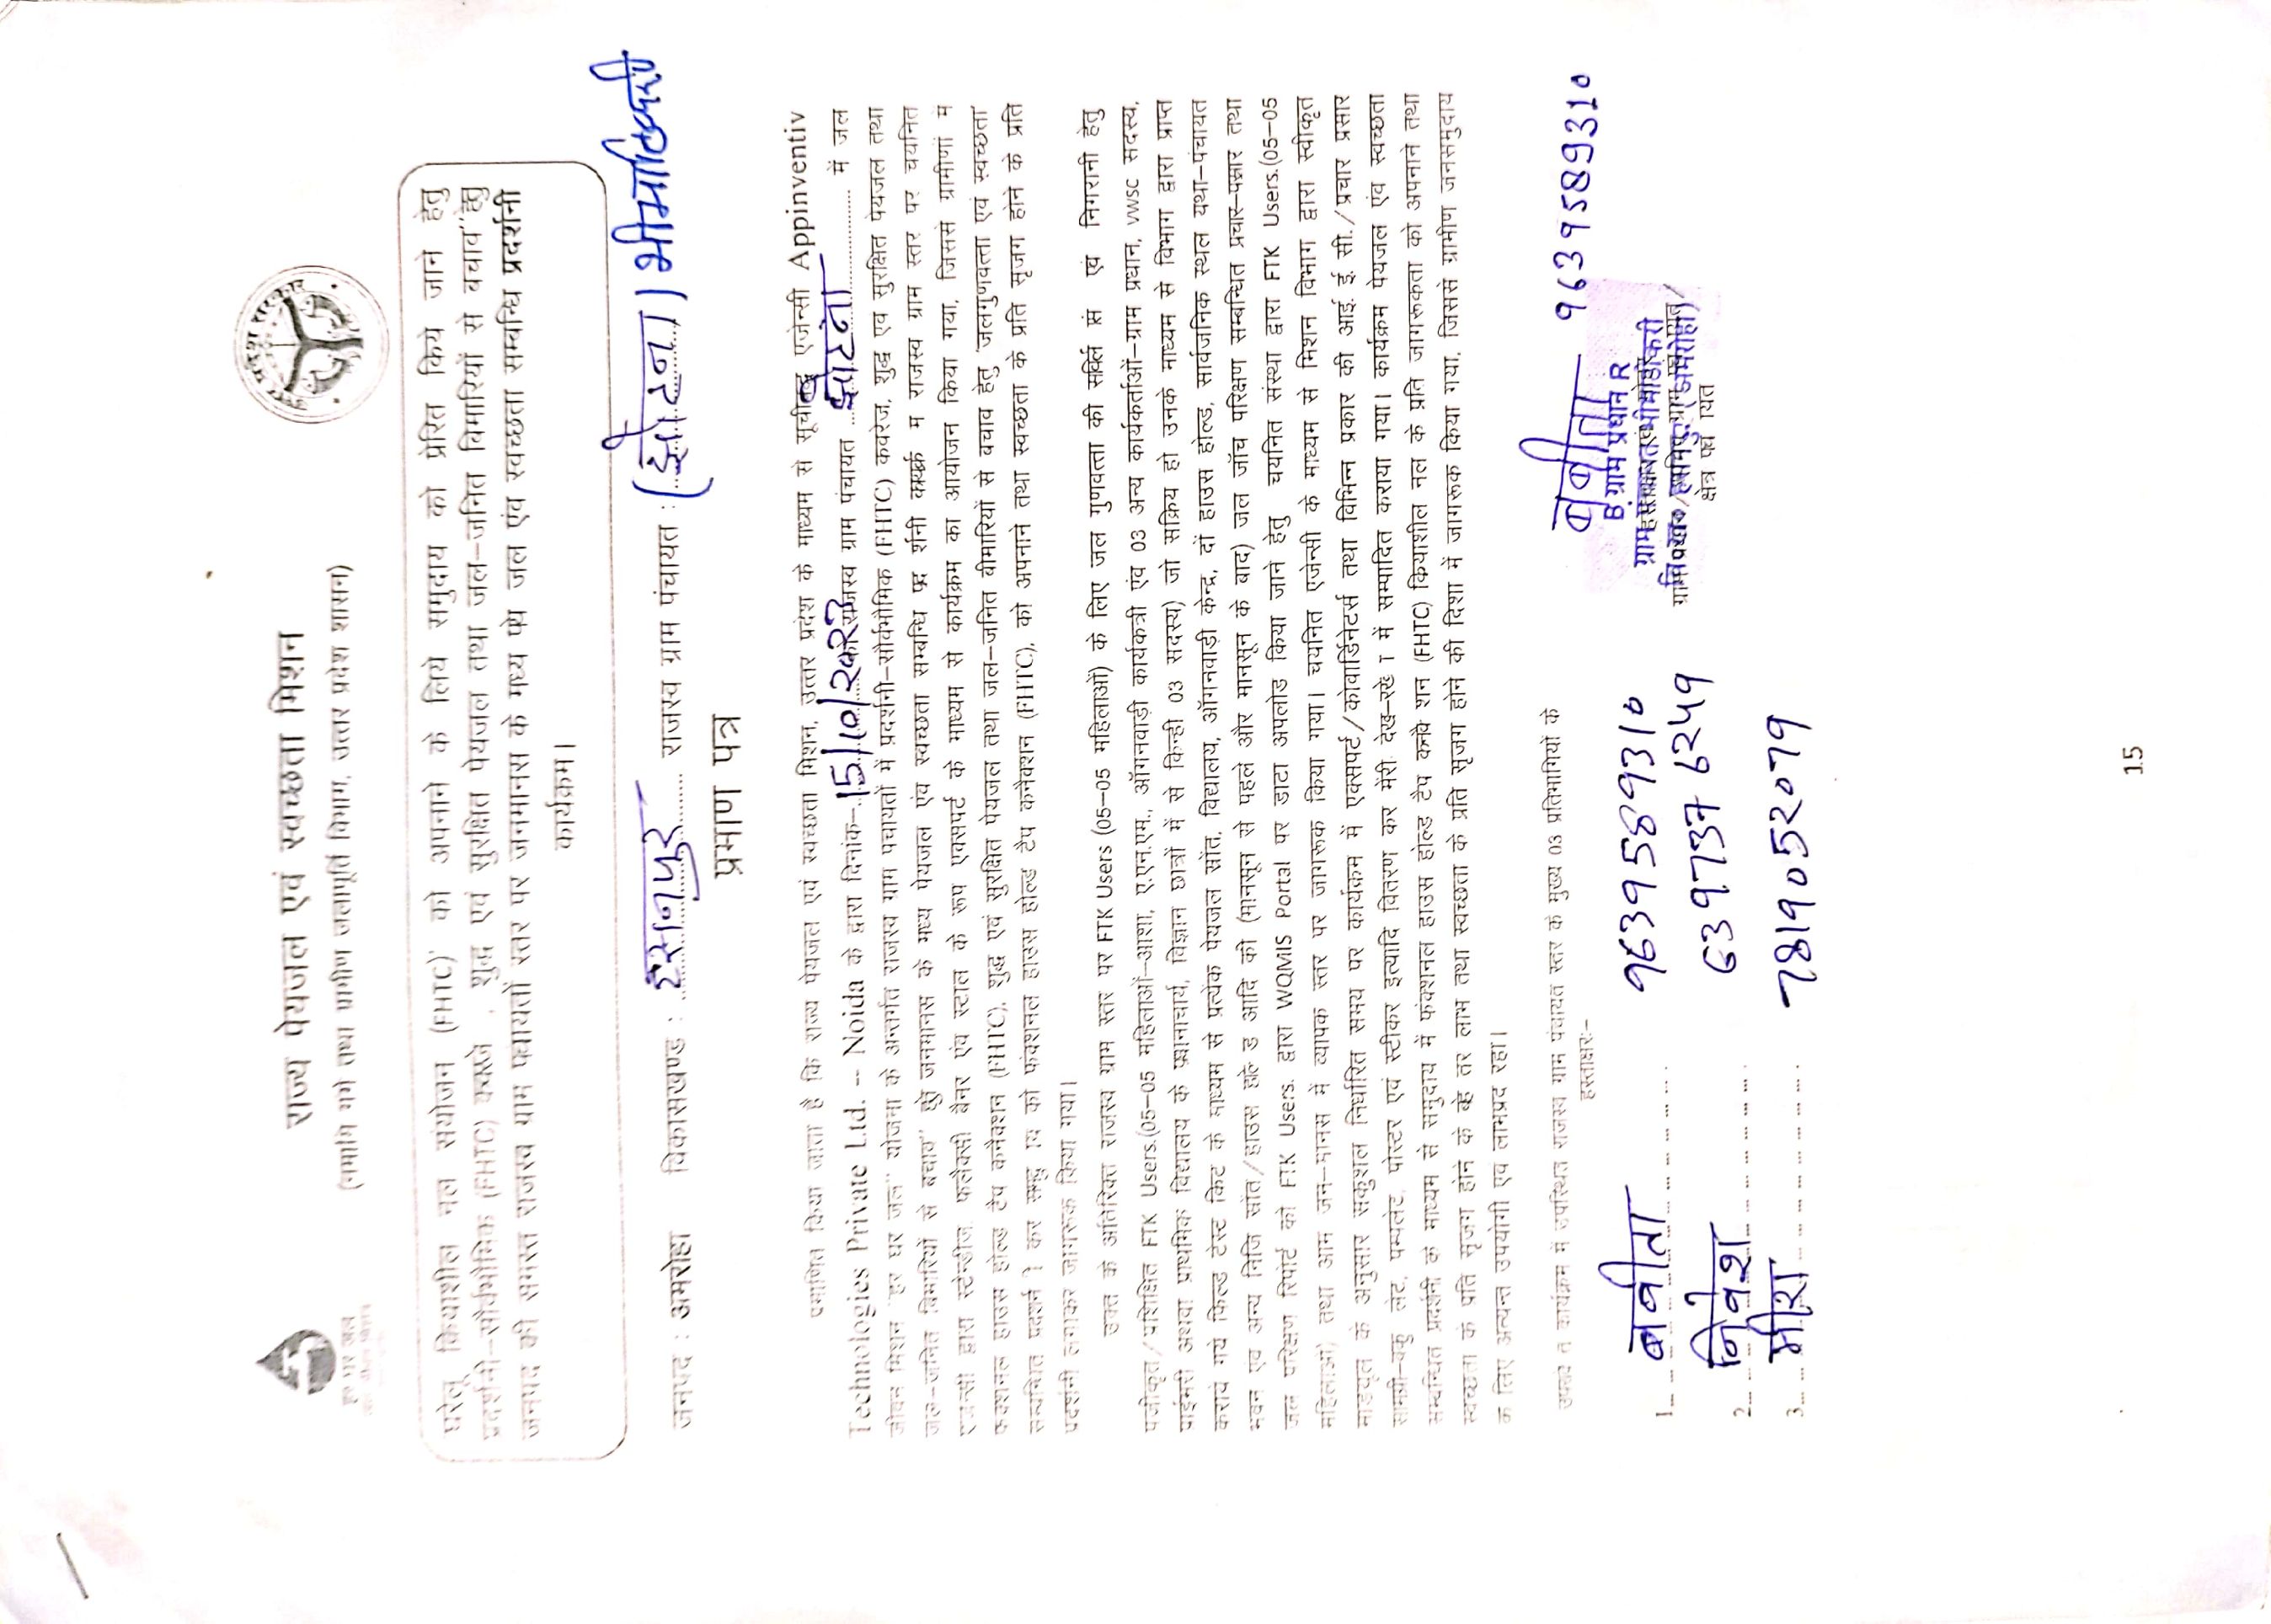 हर घर जल
राज्य पेयजल एवं स्वच्छता मिशन
(नमामि गंगे तथा ग्रामीण जलापूर्ति विभाग, उत्तर प्रदेश शासन)
घरेलू कियाशील नल संयोजन (FHTC) को अपनाने के लिये समुदाय को प्रेरित किये जाने हेतु
प्रदर्शनी–सौर्वभौमिक (FHTC) शुद्ध एवं सुरक्षित पेयजल तथा जल–जनित विमारियों से बचाव हेतु
जनपद की समस्त राजस्व ग्राम स्तर पर जनमानस के मध्य जल एंव स्वच्छता सम्बन्धि प्रदर्सनी
कार्यकम।
जनपद : अमरोहा विकासखण्ड : हसनपुर राजस्व ग्राम पंचायत : (झोटना) भीमाठिकरी
प्रमाण पत्र
प्रमाणित किया जाता है कि राज्य पेयजल एवं स्वच्छता मिशन, उत्तर प्रदेश के माध्यम से एजेन्सी Appinventiv
Technologies Private Ltd. – Noida के द्वारा दिनांक– 15/10/2023 राजस्व ग्राम पंचायत झोटना में जल
जीवन मिशन "हर घर जल" योजना के अन्तर्गत राजस्व ग्राम पंचायतों में प्रदर्शनी–सौर्वभौमिक (FHTC) कवरेज, शुद्ध एवं सुरक्षित पेयजल तथा
जल–जनित विमारियों से बचाव" हेतु जनमानस के मध्य पेयजल एंव स्वच्छता सम्बन्धि राजस्व ग्राम स्तर पर चयनित
एजेन्सी द्वारा स्टेन्डील, फ्लैक्सी बैनर एंव स्टाल के रूप एक्सपर्ट के माध्यम से कार्यक्रम का आयोजन किया गया, जिससे ग्रामीणों में
फंक्शनल हाउस होल्ड टैप कनैक्शन (FHTC), शुद्ध एवं सुरक्षित पेयजल तथा जल–जनित बीमारियों से बचाव हेतु जलगुणवत्ता एवं स्वच्छता
सम्बन्धित को फंक्शनल हाउस होल्ड टैप कनैक्शन (FHTC), को अपनाने तथा स्वच्छता के प्रति सृजग होने के प्रति
प्रदर्शनी लगाकर जागरूक किया गया।
उक्त के अतिरिक्त राजस्व ग्राम स्तर पर FTK Users (05–05 महिलाओं) के लिए जल गुणवत्ता की एवं निगरानी हेतु
पंजीकृत/प्रशिक्षित FTK Users.(05–05 महिलाओं–आशा, ए.एन.एम., ऑगनवाड़ी कार्यकत्री एंव 03 अन्य कार्यकर्ताओं–ग्राम प्रधान, vwsc सदस्य,
प्राईमरी अथवा प्राथमिक विद्यालय के प्रधानाचार्य, विज्ञान छात्रों में से किन्ही 03 सदस्य) जो सक्रिय हो उनके माध्यम से विभाग द्वारा प्राप्त
कराये गये फिल्ड टेस्ट किट के माध्यम से प्रत्येक पेयजल स्रोत, विद्यालय, ऑगनवाड़ी केन्द्र, दों हाउस होल्ड, सार्वजनिक स्थल यथा–पंचायत
भवन एंव अन्य निजि स्रोत/हाउस आदि की (मानसून से पहले और मानसून के बाद) जल जॉच परिक्षण सम्बन्धित प्रचार–प्रसार तथा
जल परिक्षण रिपोर्ट को FTK Users. द्वारा WQMIS Portal पर डाटा अपलोड किया जाने हेतु चयनित संस्था द्वारा FTK Users.(05–05
महिलाओं) तथा आम जन–मानस में व्यापक स्तर पर जागरूक किया गया। चयनित एजेन्सी के माध्यम से मिशन विभाग द्वारा स्वीकृत
माड्यूल के अनुसार सकुशल निर्धारित समय पर कार्यक्रम में एक्सपर्ट/कोवार्डिनेटर्स तथा विभिन्न प्रकार की आई. ई. सी./प्रचार प्रसार
सामग्री, पम्पलेट, पोस्टर एवं स्टीकर इत्यादि वितरण कर मेंरी में सम्पादित कराया गया। कार्यक्रम पेयजल एंव स्वच्छता
सम्बन्धित प्रदर्शनी के माध्यम से समुदाय में फंक्शनल हाउस होल्ड टैप (FHTC) कियाशील नल के प्रति जागरूकता को अपनाने तथा
स्वच्छता के प्रति सृजग होने के लाभ तथा स्वच्छता के प्रति सृजग होने की दिशा में जागरूक किया गया, जिससे ग्रामीण जनसमुदाय
के लिए अत्यन्त उपयोगी एंव लाभप्रद रहा।
कार्यक्रम में उपस्थित राजस्व ग्राम पंचायत स्तर के मुख्य 03 प्रतिभागियों के
हस्ताक्षरः–
बबीता 9639589310
ग्राम प्रधान
क्षेत्र पंचायत
1. बबीता 9639589310
2. निवेश 6397376249
3. मीरा 7819052079
15